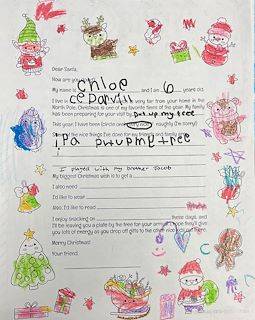 Dear Santa,
How are you doing?
My name is Chloe and I am 6 years old.
I live in Cedarvill very far from your home in the
North Pole. Christmas is one of my favorite times of the year. My family
has been preparing for your visit by Put up my tree
This year, I have been (circle one) nice / naughty (I'm sorry!)
Some of the nice things I've done for my friends and family are
i Pa putupmy tree
I played with my brother Jacob
My biggest Christmas wish is to get a
I also need
I'd like to wear
Also, I'd like to read
I enjoy snacking on these days, and
I'll be leaving a plate by the tree for your and hope they'll give
you lots of energy as you drop off gifts to the other nice kids out there.
Merry Christmas!
Your friend,